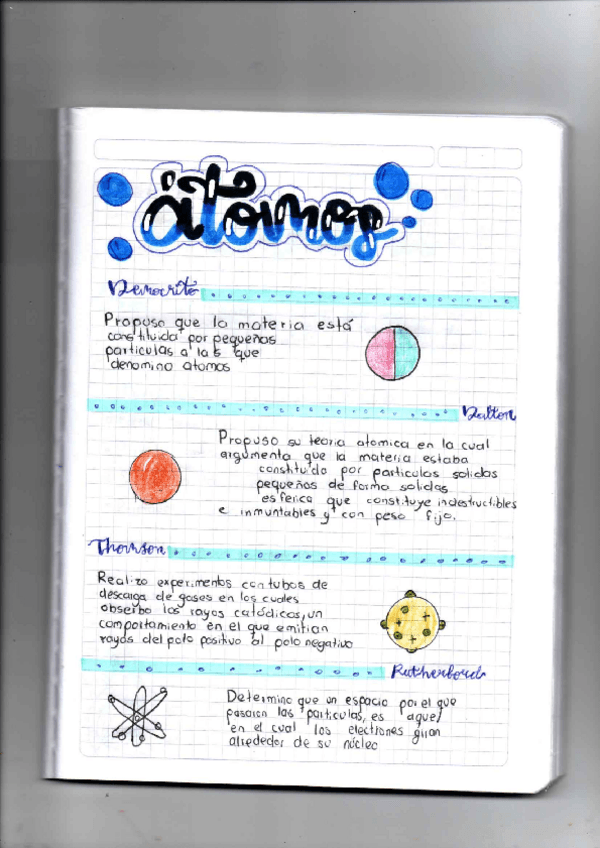 átomos
Democrito
Propuso que la materia está
constituida por pequeñas
particulas a las que
denomino atomos
Dalton
Propuso su teoria atomica en la cual
argumenta que la materia estaba
constituido por particulas solidas
pequeñas de forma solidas
esferica que constituye indestructibles
e inmuntables y con peso fijo.
Thomson
Realizo experimentos con tubos de
descarga de gases en los cuales
obserbo los rayos catódicos, un
comportamiento en el que emitian
rayos del polo positivo al polo negativo
Rutherbord
Determino que un espacio por el que
pasaron las particulas, es aquel
en el cual los electrones giran
alrededor de su núcleo